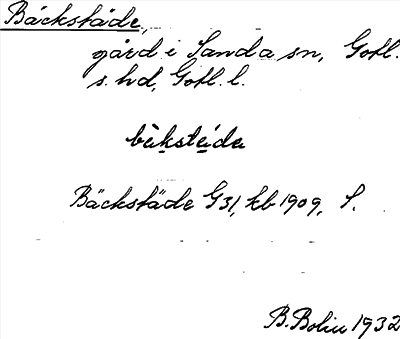 Bäckstäde,
gård i Sanda sn, Gotl.
s. hd, Gotl. l.
bèkstéda
Bäckstäde G31, kb 1909, S.
B. Bolin 1932